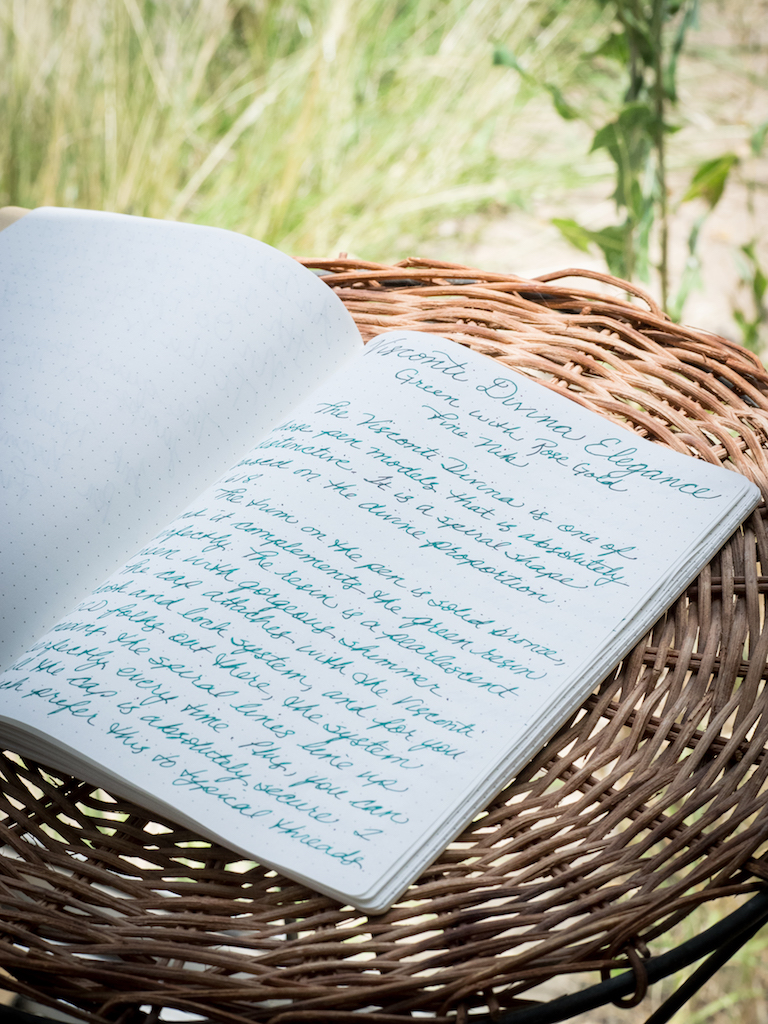 Visconti Divina Elegance
Green with Rose Gold
Fine Nib
The Visconti Divina is one of
pen models that is absolutely
distinctive. It is a spiral shape
on the divine proportion
The trim on the pen is solid bronze,
it complements the green resin
The resin is a pearlescent
with gorgeous shimmer
The cap attaches with the Visconti
and lock system, and for you
folks out there, the system
the spiral lines line up
every time. Plus, you can
the cap is absolutely secure. I
prefer this to typical threads